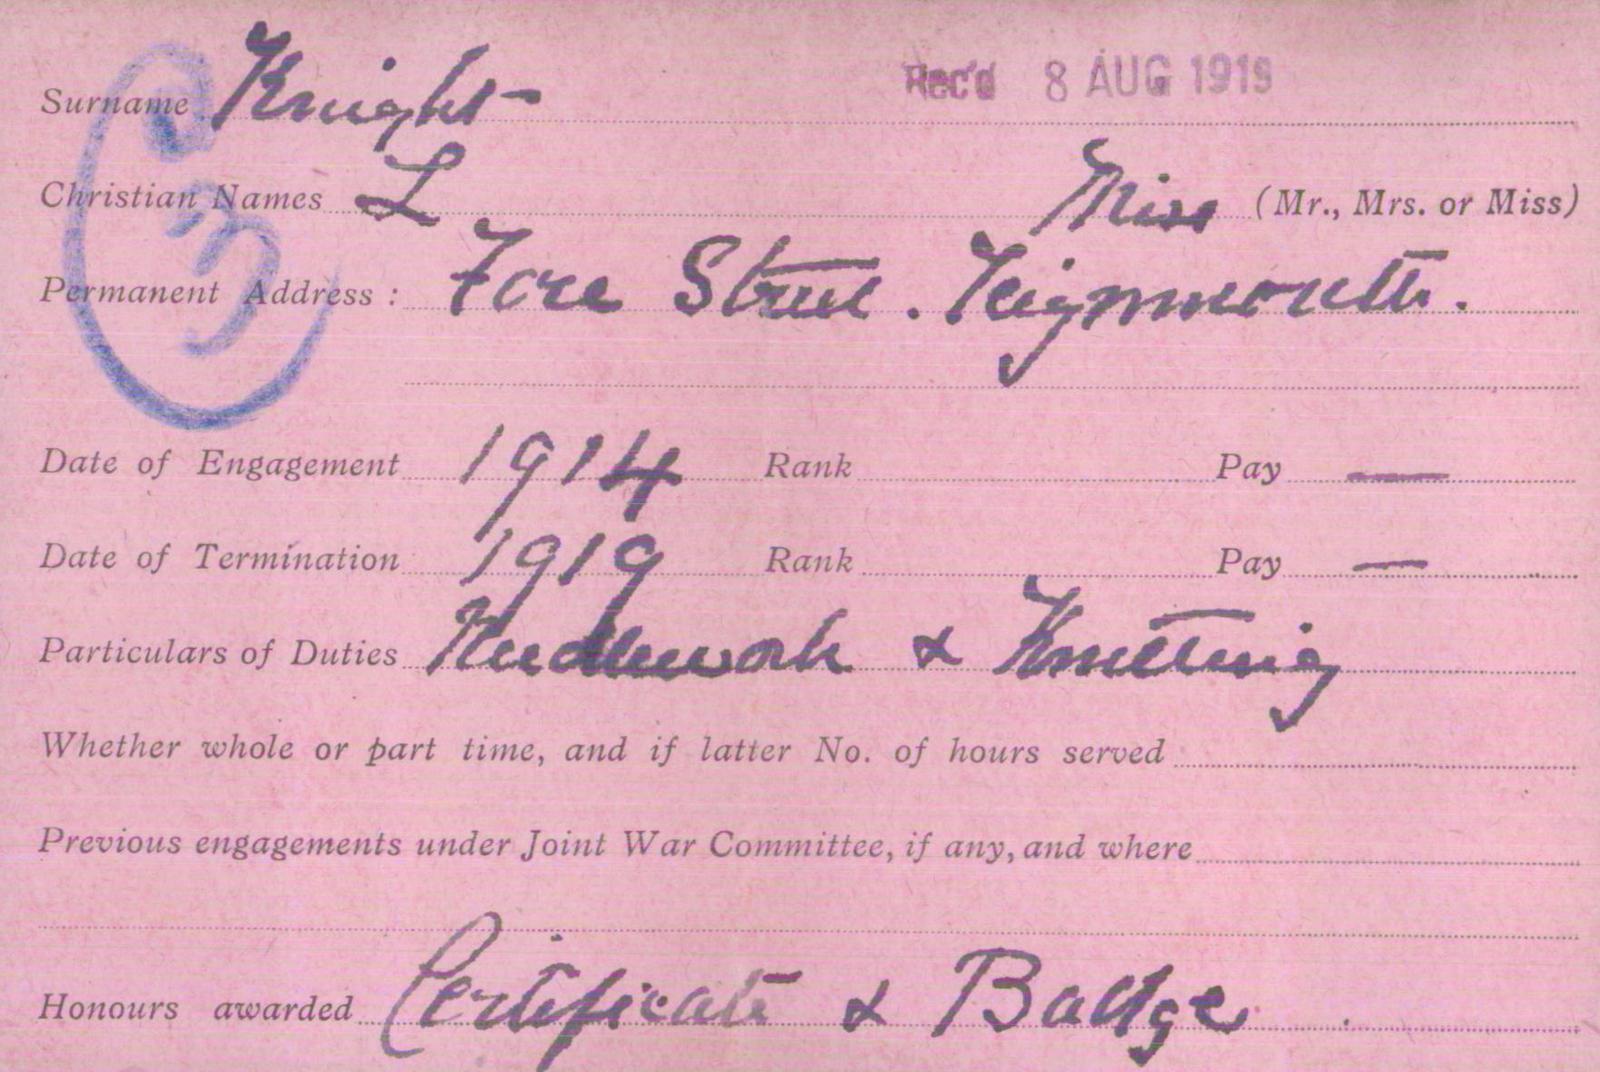 Surname Knight Rec'd 8 AUG 1919
Christian Names L Miss (Mr., Mrs. or Miss)
Permanent Address : Fore Street. Teignmouth.
Date of Engagement 1914 Rank Pay —
Date of Termination 1919 Rank Pay —
Particulars of Duties Needlework & Knitting
Whether whole or part time, and if latter No. of hours served
Previous engagements under Joint War Committee, if any, and where
Honours awarded Certificate & Badge